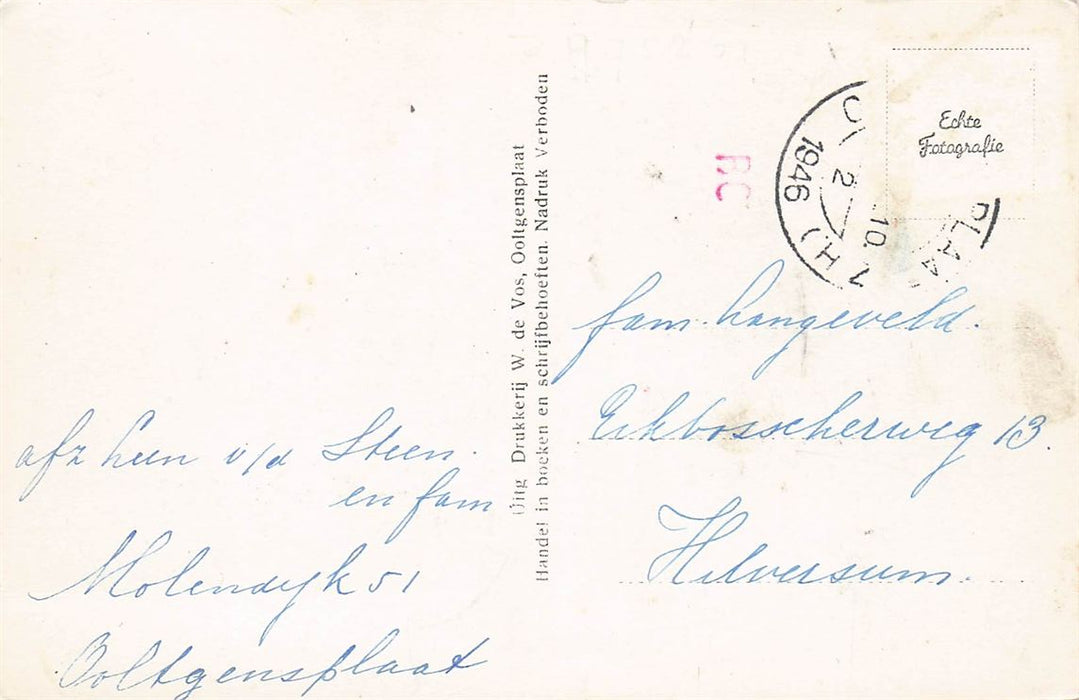 afz Leen v/d Steen.
en fam
Molendyk 51
Ooltgensplaat
Uitg Drukkerij W. de Vos, Ooltgensplaat
Handel in boeken en schrijfbehoeften. Nadruk Verboden
Echte
Fotografie
1946
2
10
Z H)
PLAA
fam. Langeveld.
Eikbosscherweg 13.
Hilversum.